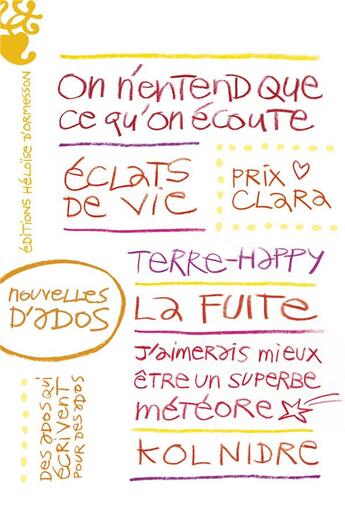 ÉDITIONS HÉLOÏSE D'ORMESSON
On n'entend que
ce qu'on écoute
ÉCLATS
DE VIE
PRIX
CLARA
TERRE-HAPPY
nouvelles
D'ADOS
LA FUITE
J'aimerais mieux
être un superbe
météore
DES ADOS QUI
ÉCRIVENT
POUR DES ADOS
KOL NIDRE